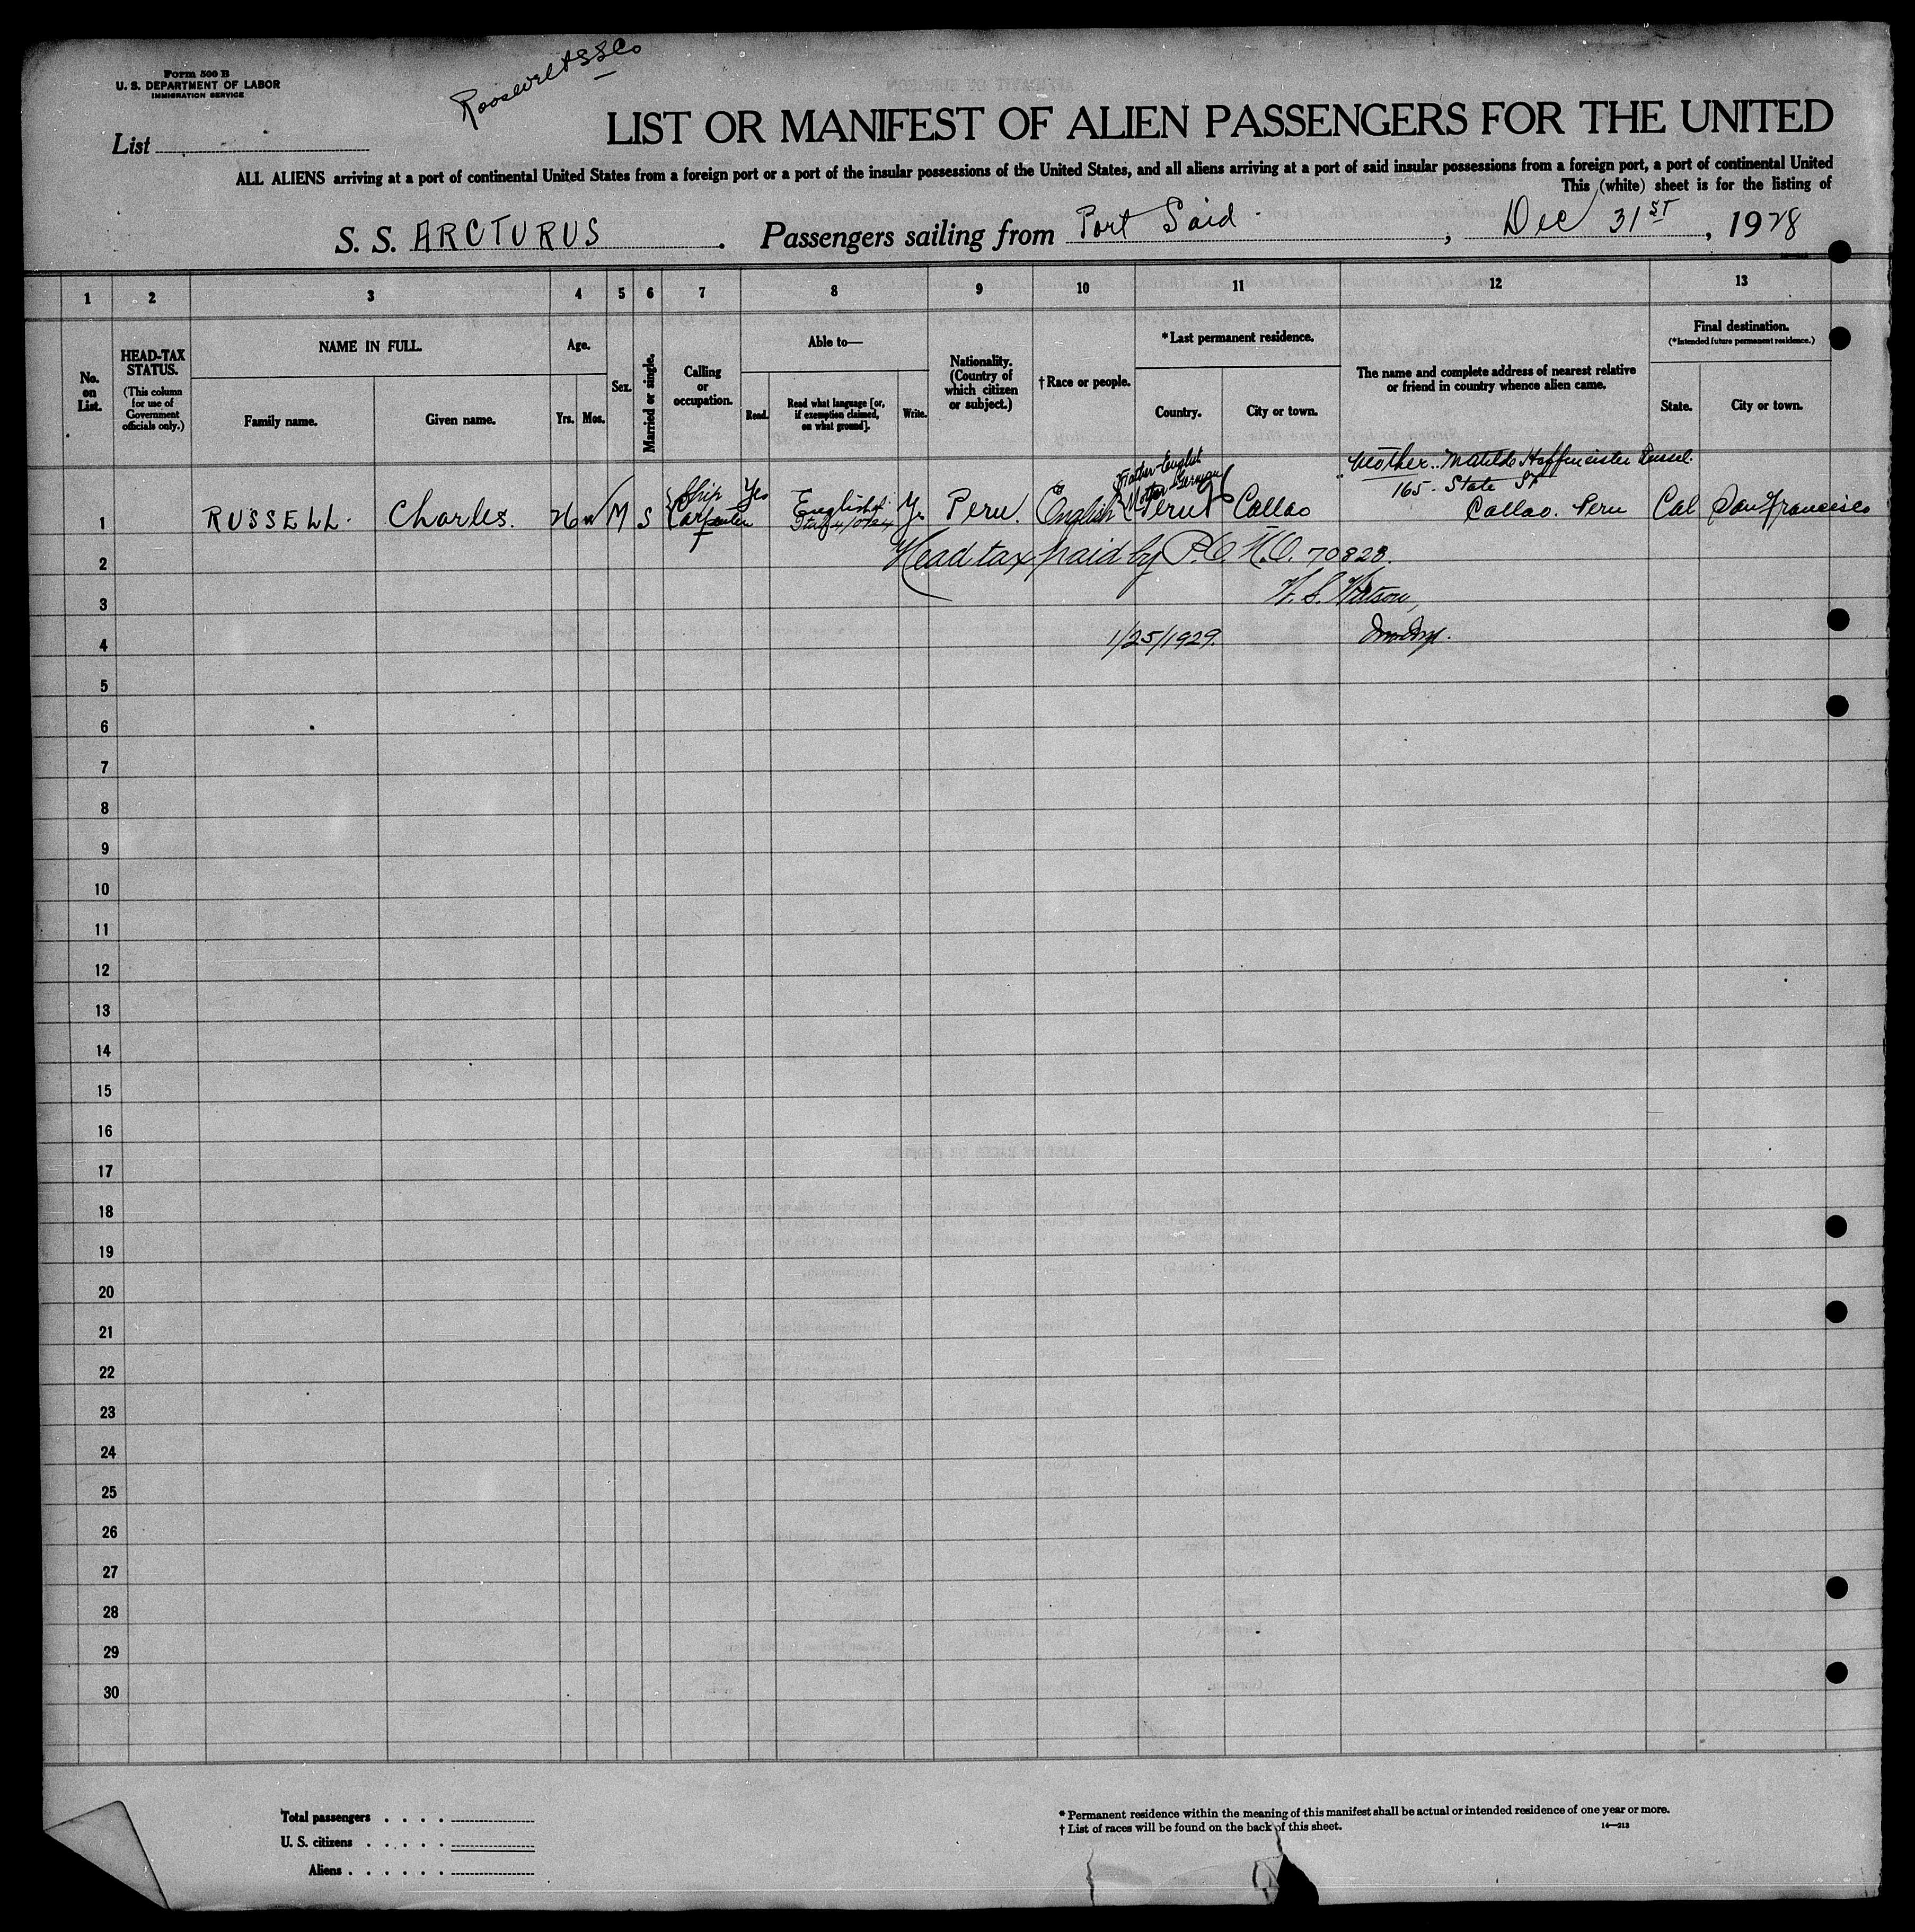 Form 500 B
U. S. DEPARTMENT OF LABOR
IMMIGRATION SERVICE
Roosevelt SS Co
List
LIST OR MANIFEST OF ALIEN PASSENGERS FOR THE UNITED
ALL ALIENS arriving at a port of continental United States from a foreign port or a port of the insular possessions of the United States, and all aliens arriving at a port of said insular possessions from a foreign port, a port of continental United
This (white) sheet is for the listing of
S. S. ARCTURUS. Passengers sailing from Port Said, Dec 31ST, 1928
1 2 3 4 5 6 7 8 9 10 11 12 13
No. on List.
HEAD-TAX STATUS.
(This column for use of Government officials only.)
NAME IN FULL.
Family name.
Given name.
Age.
Yrs.
Mos.
Sex.
Married or single.
Calling or occupation.
Able to—
Read.
Read what language [or, if exemption claimed, on what ground].
Write.
Nationality. (Country of which citizen or subject.)
† Race or people.
*Last permanent residence.
Country.
City or town.
The name and complete address of nearest relative or friend in country whence alien came.
Final destination.
(*Intended future permanent residence.)
State.
City or town.
Father English
Mother German
Mother. Matilde Hoffmeister Russel.
165. State St
1 RUSSELL. Charles. 26 M S Ship Carpenter Yes English Peru. English Peru Callao Callao. Peru Cal San Francisco
2 Head tax paid by 70828.
3 Watson,
4 1/25/1929.
5
6
7
8
9
10
11
12
13
14
15
16
17
18
19
20
21
22
23
24
25
26
27
28
29
30
Total passengers . . . .
U. S. citizens . . . . .
Aliens . . . . . .
* Permanent residence within the meaning of this manifest shall be actual or intended residence of one year or more.
† List of races will be found on the back of this sheet.
14—213